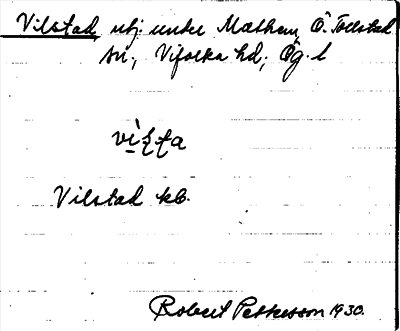 Vilstad, utj. under Mathem, Ö. Tollstad
sn, Vifolka hd, Ög. l
Vilstad kb.
Robert Pettersson 1930.